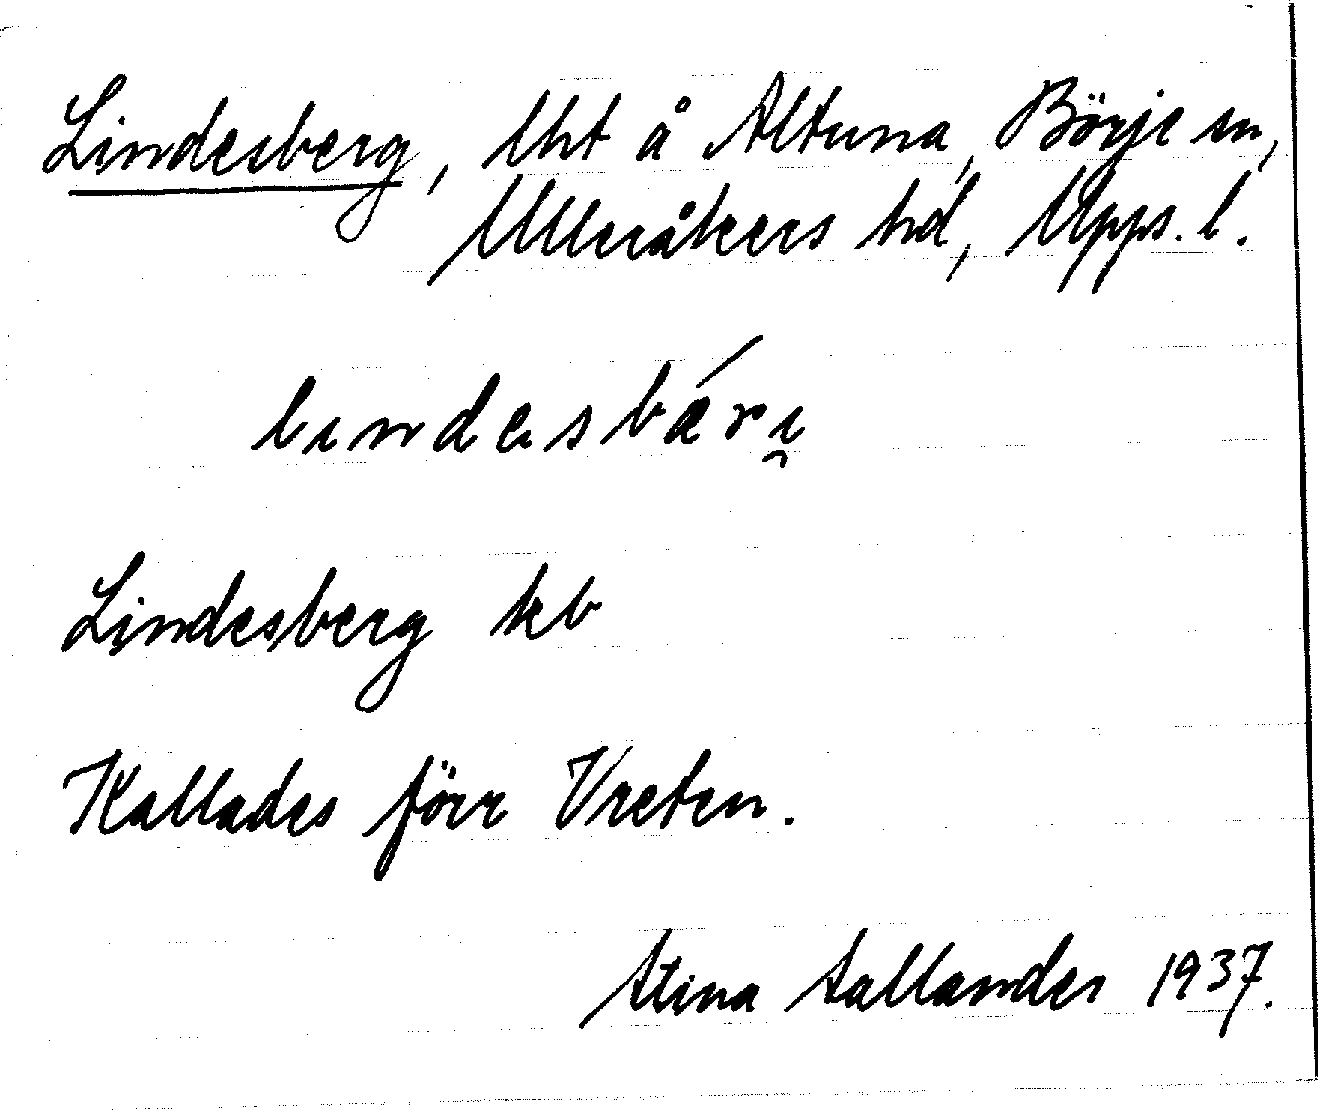 Lindesberg, lht å Altuna, Börje sn,
Ulleråkers hd, Upps. l.
lındesbǽrı̯
Lindesberg kb
Kallades förr Vreten.
Stina Sallander 1937.